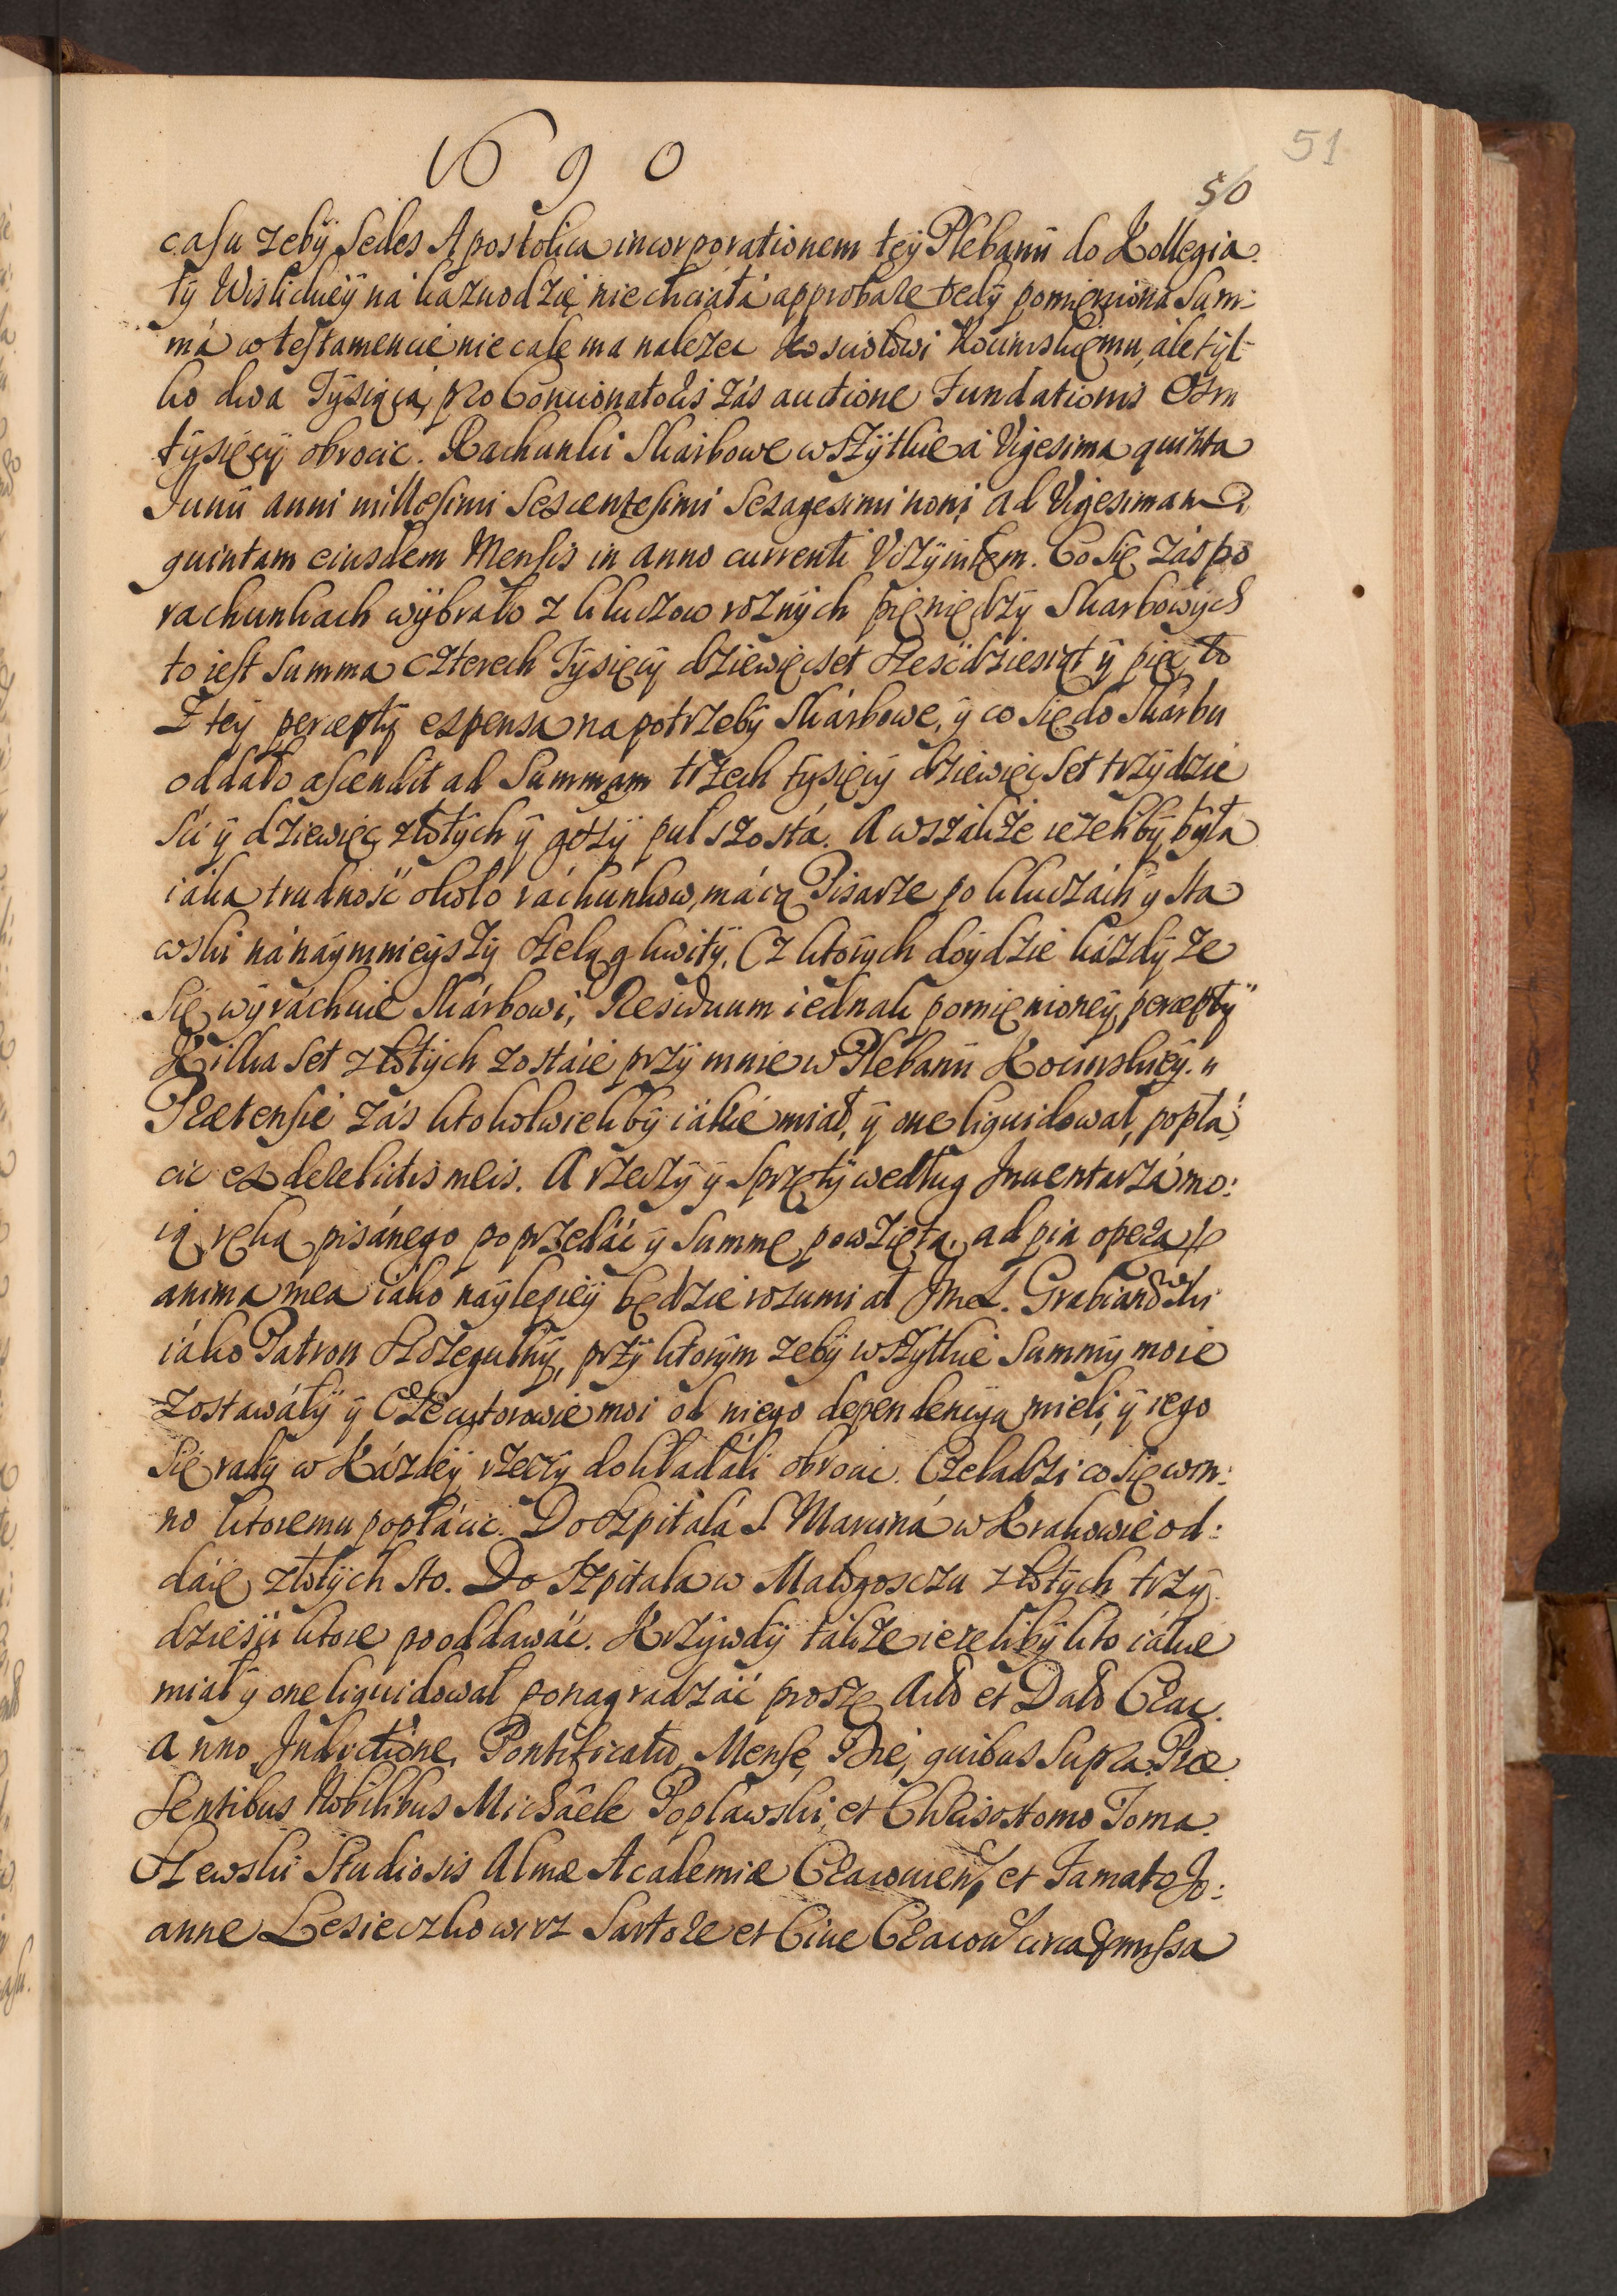 1690
51
50
casu zeby Sedes Apostolica incorporationem tey Plebanii do Kollegia:
ty Wislickiey ná káznodzię nie chciáłá approbare tedy pomięniona Sum:
má w testamencie nie cale ma nalezec kosciołowi Kocinskiemu, ále tyl:
ko dwa Tysiąca, pro Concionatoris zás auctione Fundationis Osm
tysięcy obrocic. Rachunki Skarbowe wszytkie á Vigesima quinta
Junii anni millesimi Sexcentesimi Sexagesimi noni ad Vigesimam
quintam eiusdem Mensis in anno currenti Vczyniłem. Co się zás po
rachunkach wybrało z kluczow roznych pięniędzy Skarbowych
to iest Summa czterech Tysięcy dziewięcset szescdziesiąt y pięc, to
Z tey percepty expensa na potrzeby Skárbowe, y co się do Skárbu
oddało ascendit ad Summam trzech tysięcy dziewięcset trzydzie
sci y dziewięc złotych y goszy puł szosta. A wszákże iezeliby była
iáka trudność około ráchunkow, máią Pisarze po kluczách y Sta
wski ná náymnieyszy szeląg kwity. Z ktorych doydzie kázdy że
Się wyráchuie Skárbowi, Residuum iednak pomięnioney percepty
Kilka set złotych zostáie przy mnie w Plebanii Kocinskiey.
Prætensie zás ktokolwiekby iákie miał, y one liquidował, popłá:
cic ex derelictis meis. A rzeczy y Sprzęty według Inwentarzá mo:
ią ręką pisánego poprzedáć y Summę powziętą ad pia opera p
anima mea iáko naylepiey będzie rozumiał Jmć X. Grabianowski
iáko Patron szczegulny, przy ktorym zeby wszytkie Summy moie
zostawáły y Exæcutorowie moi od niego dependencyą mieli, y iego
Się rády w Kázdey rzeczy dokładáli obrocic. Czeladzi co się win:
no ktoremu popłácic. Do szpitalá S. Marciná w Krakowie od:
dáię złotych sto. Do szpitala w Małogosczu złotych trzy
dziesci ktore pooddawáć. Krzywdy tákże iezeliby kto iákie
miał y one liquidował ponagradzáć proszę. Act̃ et Dat̃ Crac.
Anno Indictione, Pontificatu, Mense, Die, quibus Supra. Præ
sentibus Nobilibus Michaële Popławski, et Chrisostomo Toma
szewski Studiosis Almæ Academiæ Cracovien, et Famato Jo:
anne Lesieczkowicz Sartore et Ciue Cracov̄ circa præmissa